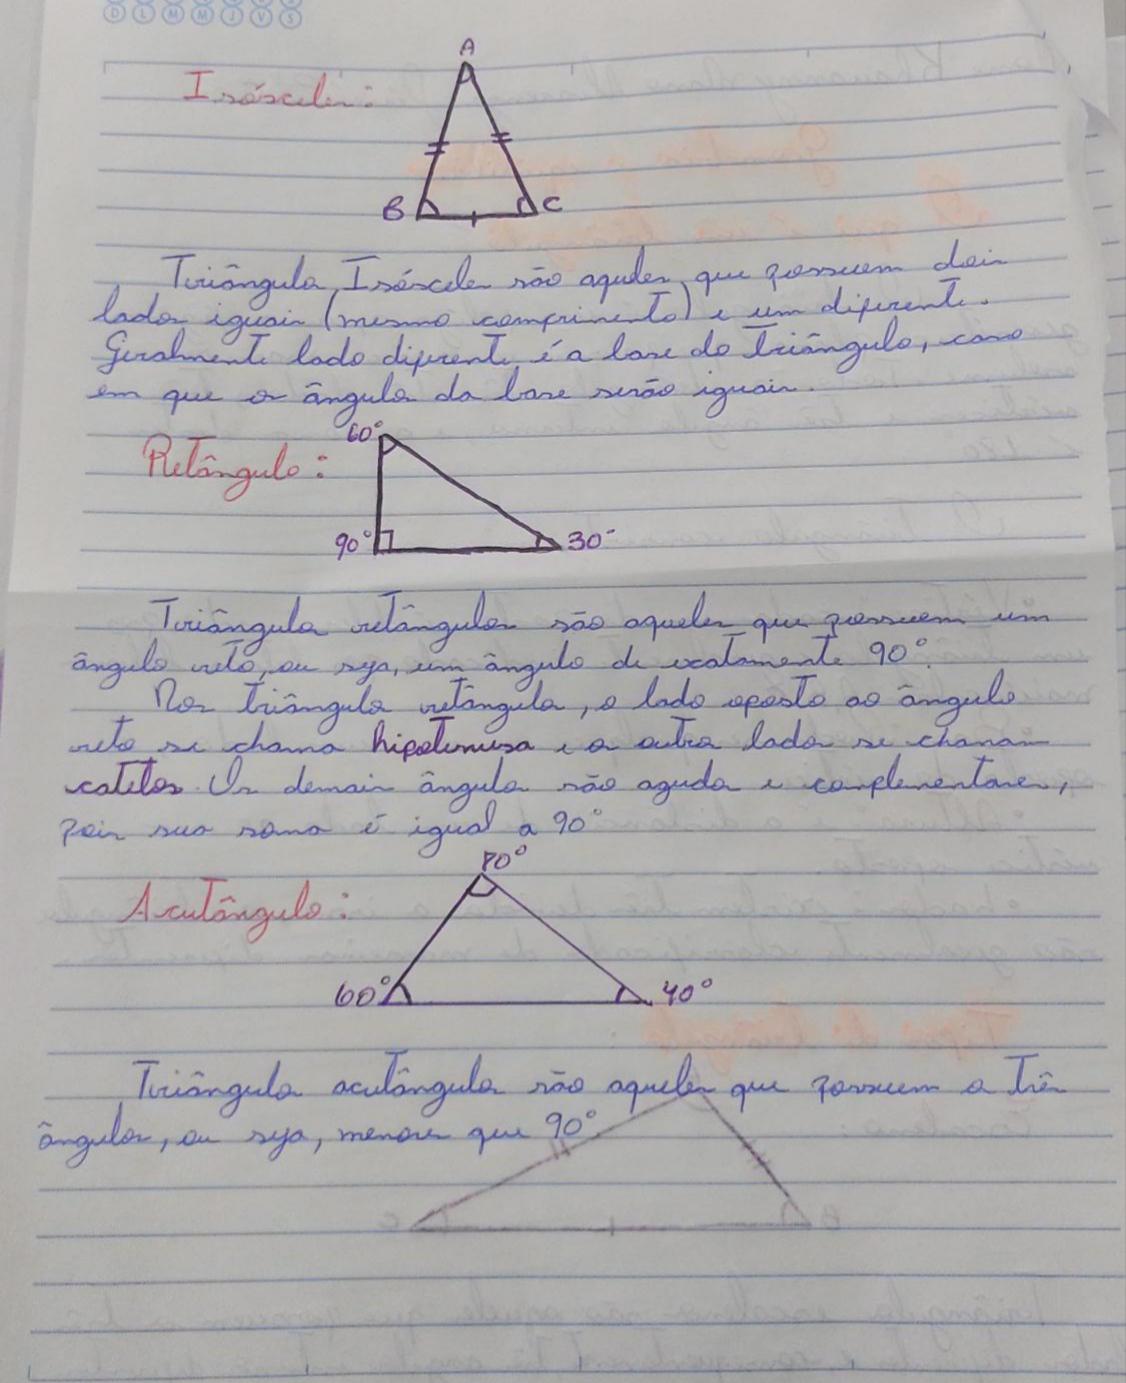 D L M M J V S
A
Isósceles:
B C
Triângulos Isósceles são aqueles que possuem dois
lados iguais (mesmo comprimento) e um diferente.
Geralmente lado diferente é a base do triângulo, caso
em que os ângulos da base serão iguais.
60°
Retângulo:
90° 30°
Triângulos retângulos são aqueles que possuem um
ângulo reto, ou seja, um ângulo de exatamente 90°.
Nos triângulos retângulos, o lado oposto ao ângulo
reto se chama hipotenusa e os outros lados se chamam
catetos. Os demais ângulos são agudos e complementares,
pois sua soma é igual a 90°
80°
Acutângulo:
60° 40°
Triângulos acutângulos são aqueles que possuem os três
ângulos, ou seja, menores que 90°